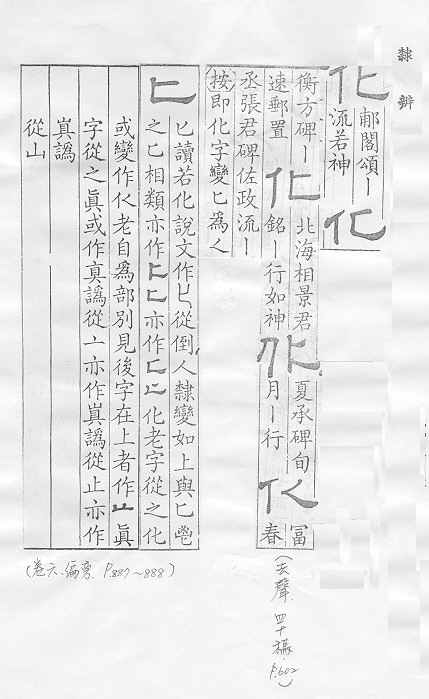 隸辨
化
郙閣頌丨
流若神
化
衡方碑丨
速郵置
化
北海相景君
銘丨行如神
化
夏承碑旬
月丨行
化
冨
春
丞張君碑佐政流丨
按即化字變匕為乀
匕
匕讀若化說文作𠤎從倒人隸變如上與匕鬯
之匕相類亦作 亦作 化老字從之化
或變作 老自為部別見後字在上者作 眞
字從之眞或作真譌從 亦作 譌從止亦作
譌
從山
(去聲.四十禡.P.602)
(卷六.偏旁.P.887~888)